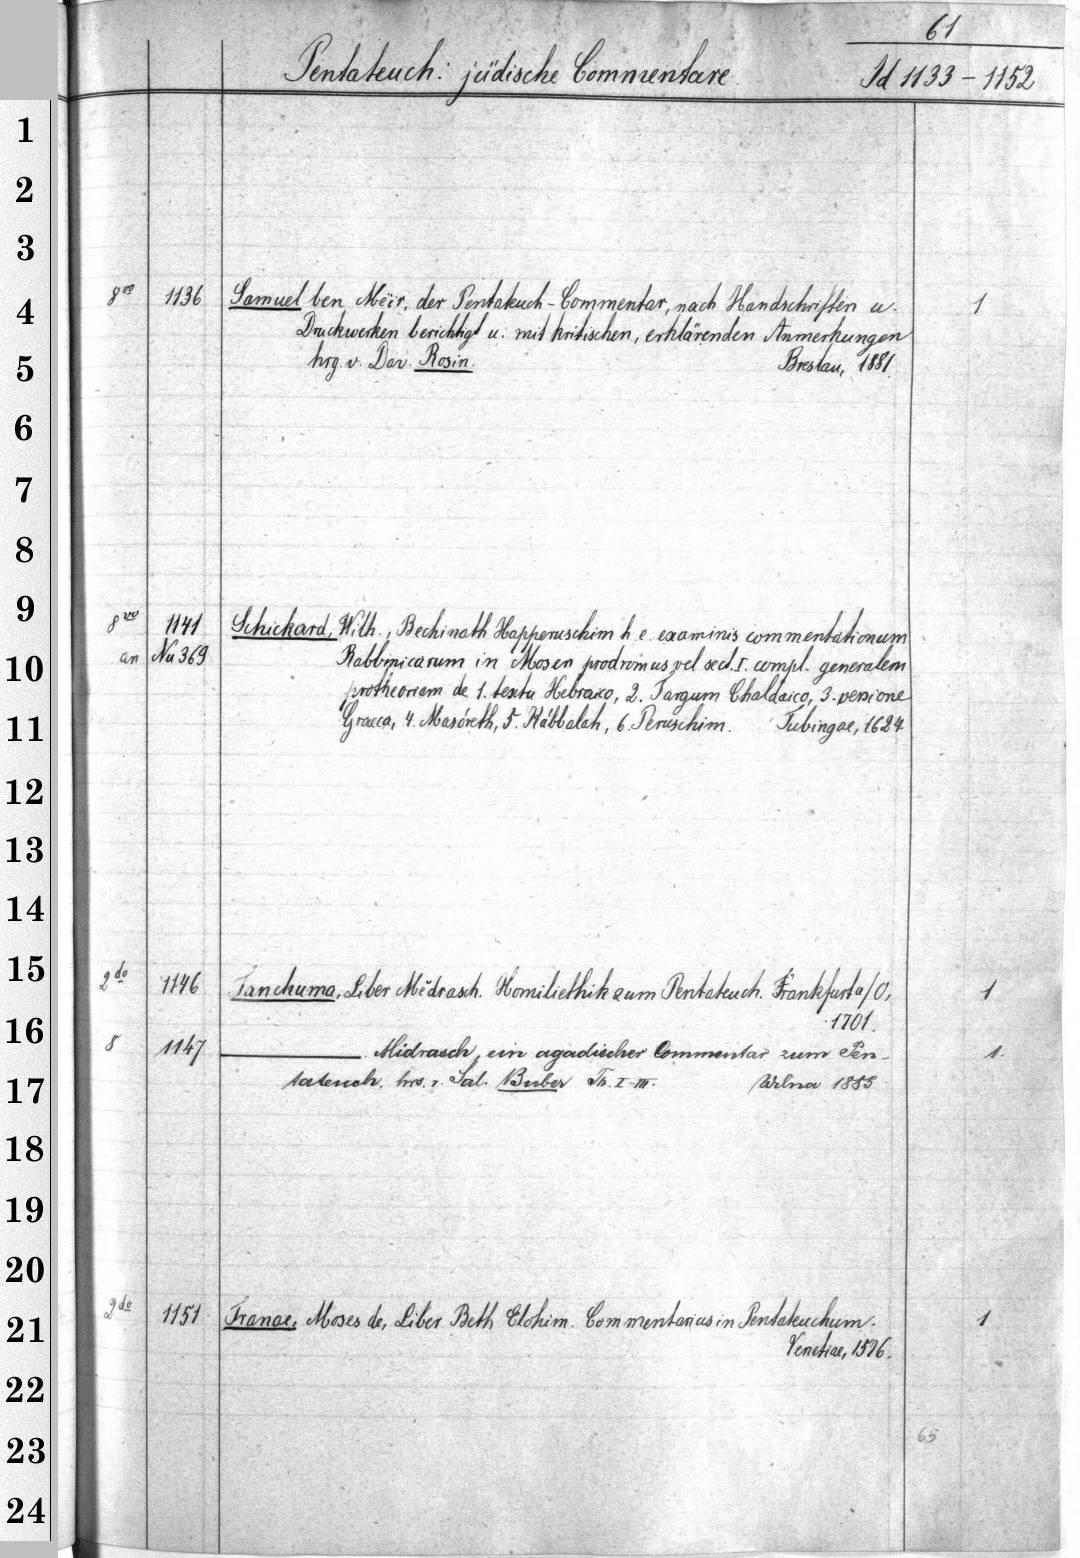 61
Pentateuch: jüdische Commentare. Id 1133 – 1152
1
2
3
4
5
6
7
8
9
10
11
12
13
14
15
16
17
18
19
20
21
22
23
24
8vo 1136 Samuel ben Mëir, der Pentateuch-Commentar, nach Handschriften u. 1
Druckwerken berichtigt u. mit kritischen, erklärenden Anmerkungen
hrg. v. Dav. Rosin. Breslau, 1881.
8vo 1141 Schickard, Wilh., Bechinath Happeruschim h. e. examinis commentationum
an Nu 369 Rabbinicarum in Mosen prodromus vel sect. I. compl. generalem
protheoriam de 1. textu Hebraico, 2. Targum Chaldaico, 3. versione
Graeca, 4. Masóreth, 5. Kábbalah, 6. Peruschim. Tubingae, 1624
2do 1146 Tanchuma, Liber Mědrasch. Homiliethik zum Pentateuch. Frankfurt a/O, 1
1701.
8 1147 ——— Midrasch, ein agadischer Commentar zum Pen- 1.
tateuch. hrs. v. Sal. Buber Th. I-III. Wilna 1885
2do 1151 Tranae, Moses de, Liber Beth Elohim. Commentarius in Pentateuchum. 1
Venetiae, 1576.
65